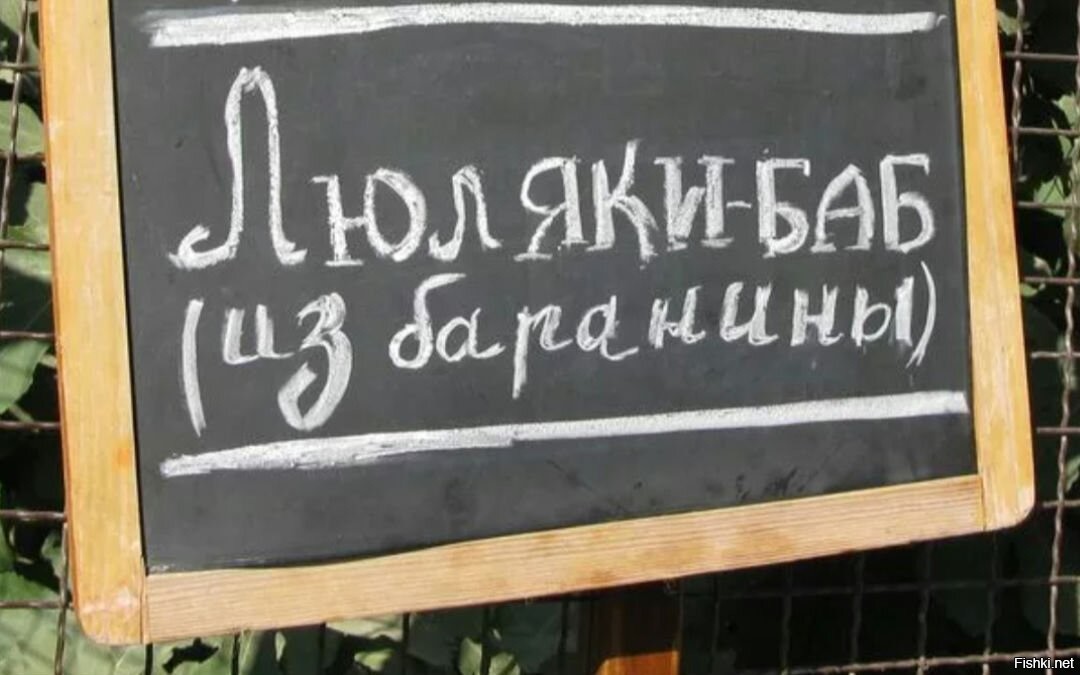 Люляки-баб
(из баранины)
Fishki.net